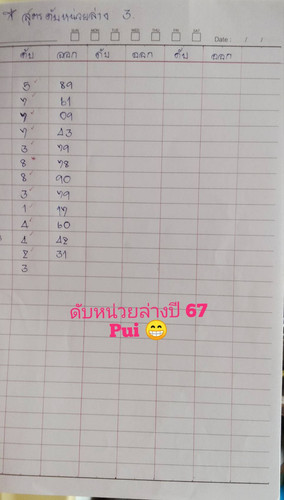 * สูตรดับหน่วยล่าง 3.
Date / /
ดับ ออก ดับ ออก ดับ ออก
5 89
7 61
7 09
7 43
3 79
8 78
8 90
3 79
1 17
4 60
1 42
2 31
3
ดับหน่วยล่างปี 67
Pui 😁